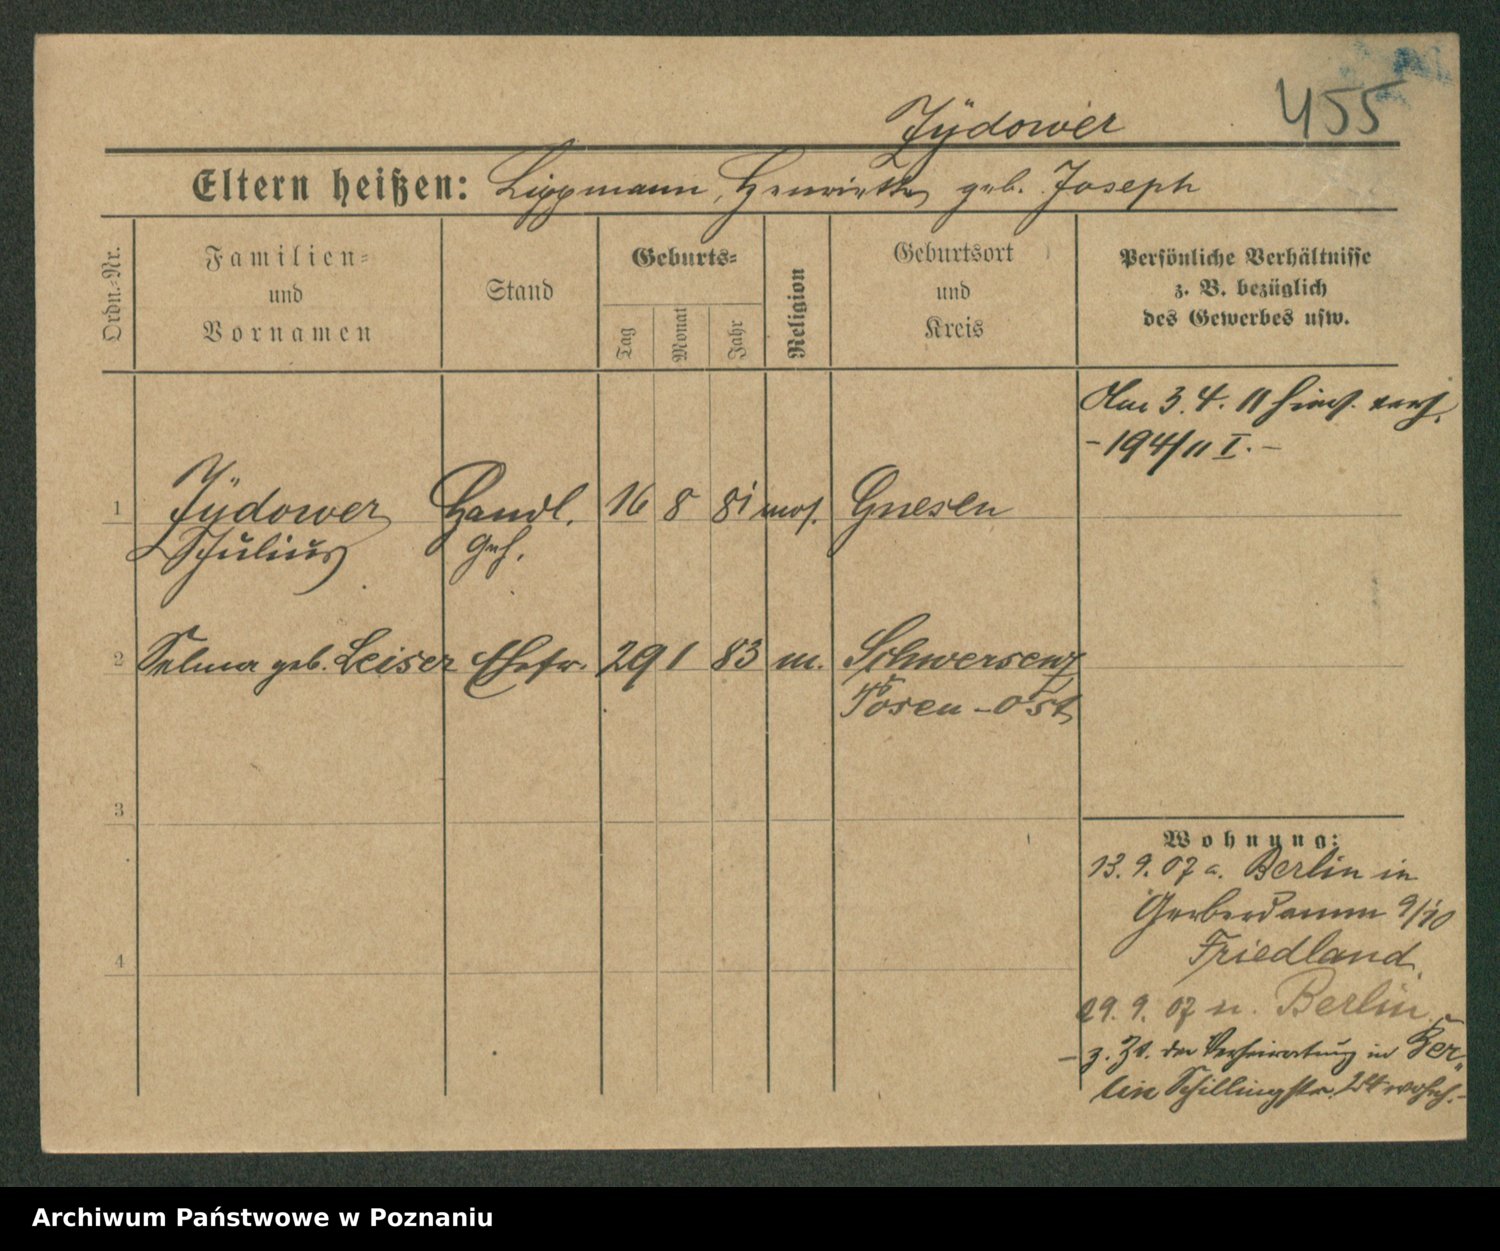 Zÿdower
455
Eltern heißen: Lippmann, Henriette geb. Joseph
Ordn.-Nr.
Familien-
und
Vornamen
Stand
Geburts-
Tag
Monat
Jahr
Religion
Geburtsort
und
Kreis
Persönliche Verhältnisse
z. B. bezüglich
des Gewerbes usw.
Am 3. 4. 11 hier verh.
- 194/11 I. -
1 Zÿdower Handl. 16 8 81 mos. Gnesen
Julius Geh.
2 Selma geb. Leiser Ehefr. 29 1 83 m. Schwersenz
Posen-Ost
3
4
Wohnung:
13. 9. 07 a. Berlin in
Gerberdamm 9/10
Friedland
29. 9. 07 n. Berlin
- z. Zt. der Verheiratung in Ber-
lin Schillingstr. 24 wohnh. -
Archiwum Państwowe w Poznaniu